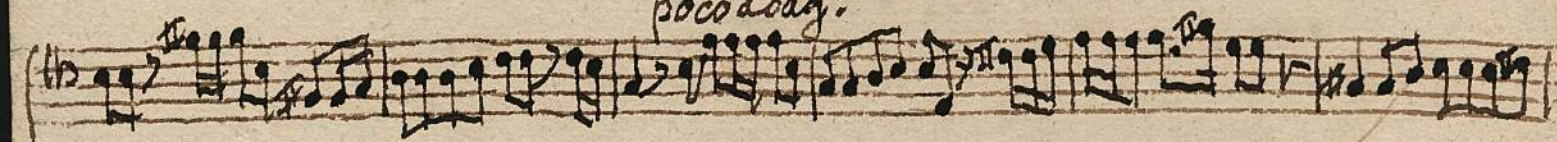 poco adag.